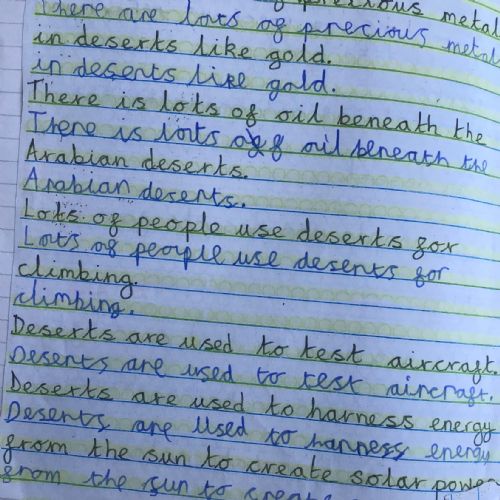 precious metal
There are lots of precious metal
in deserts like gold.
in deserts like gold.
There is lots of oil beneath the
There is lots of oil beneath the
Arabian deserts.
Arabian deserts.
Lots of people use deserts for
Lots of people use deserts for
climbing.
climbing.
Deserts are used to test aircraft.
Deserts are used to test aircraft.
Deserts are used to harness energy
Deserts are used to harness energy
from the sun to create solar power
from the sun to create